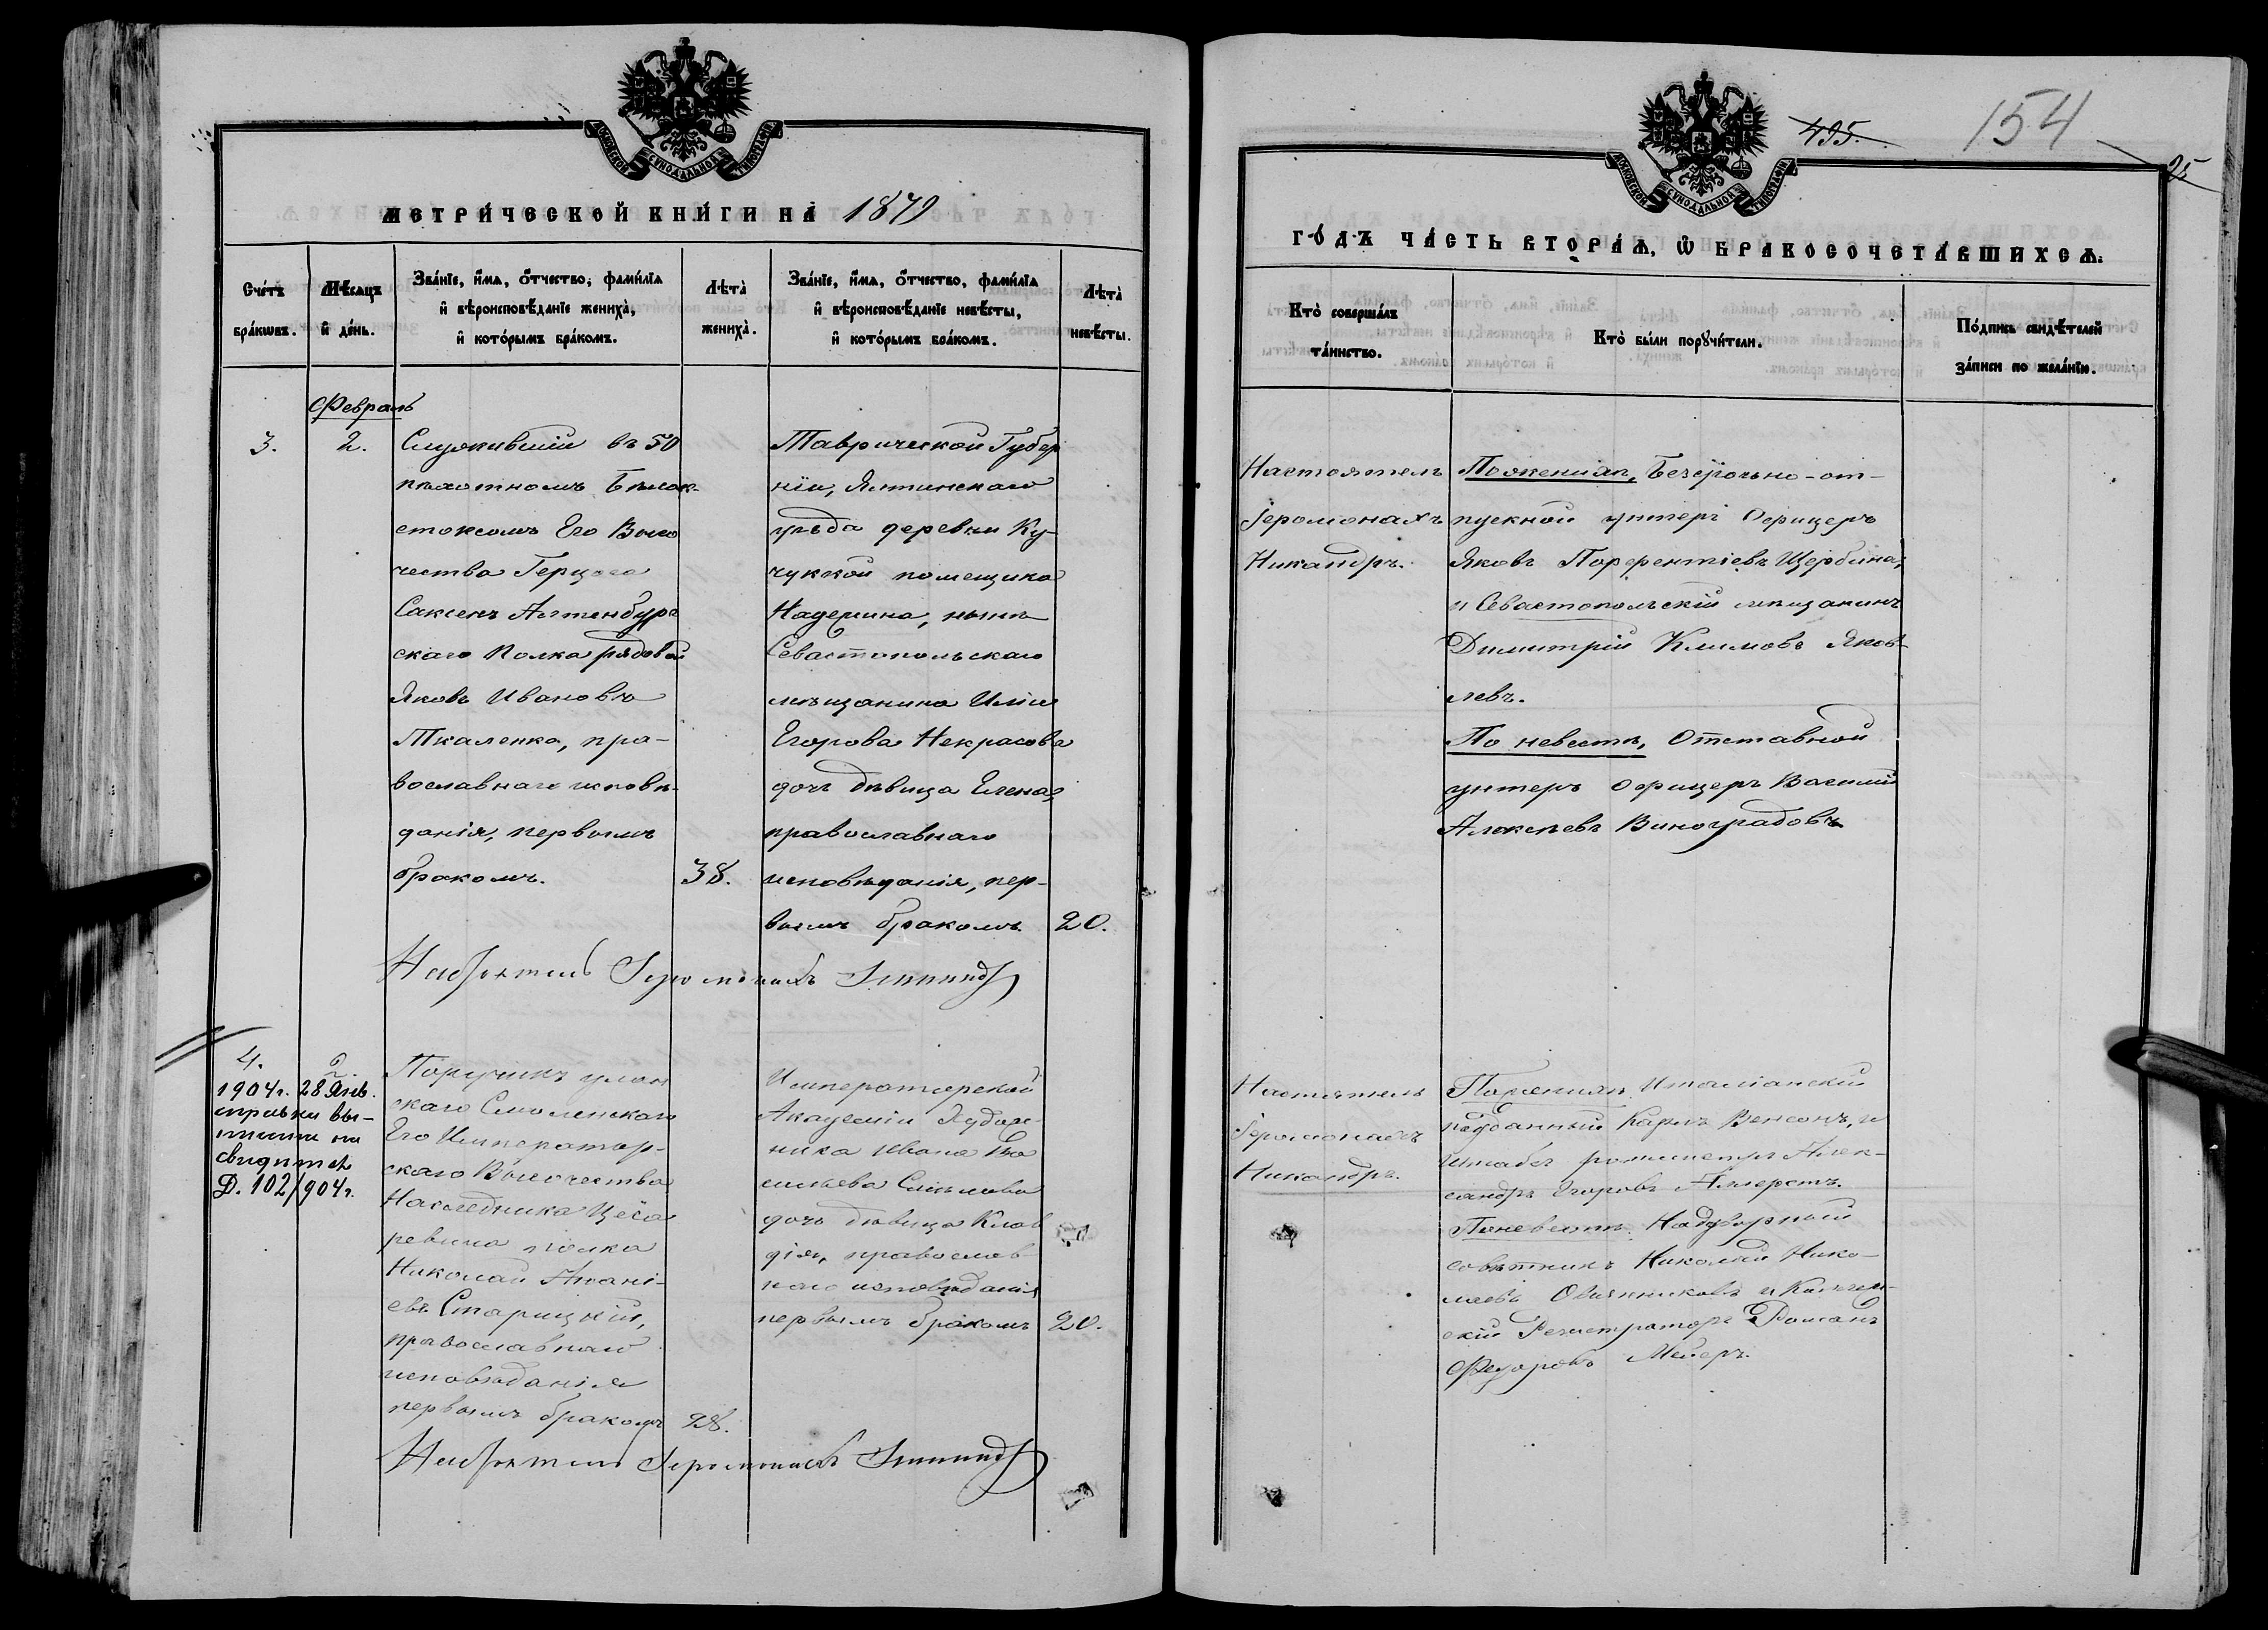 МОСКОВСКОЙ СУНОДАЛЬНОЙ ТИПОГРАФІИ
МЕТРИ́ЧЕСКОЙ КНИ́ГИ НА 1879
Сче́тъ бра́кωвъ.
Мѣ́сяцъ и҆ де́нь.
Зва́нїе, и҆́мѧ, ѻ҆́тчество, фами́лїѧ
и҆ вѣроисповѣ́данїе жениха̀,
и҆ кото́рымъ бра́комъ.
Лѣта̀ жениха̀.
Зва́нїе, и҆́мѧ, ѻ҆́тчество, фами́лїѧ
и҆ вѣроисповѣ́данїе невѣ́сты,
и҆ кото́рымъ бра́комъ.
Лѣта̀ невѣ́сты.
Февраль
3.
2.
Служившій въ 50
пѣхотномъ Бѣлок-
стокомъ Его Высо
чества Герцога
Саксенъ Альтенбург
скаго полка рядовой
Яковъ Ивановъ
Ткаленко, пра-
вославнаго исповѣ-
данія, первымъ
бракомъ.
38.
Таврической Губер
ніи, Ялтинскаго
уѣзда деревни Ку-
чуккой помещика
нынѣ
Севастопольскаго
мѣщанина Иліи
Егорова Некрасова
дочь дѣвица Елена,
православнаго
исповѣданія, пер-
вымъ бракомъ
20.
Настоятель Іеромонахъ Никандръ
4.
2.
1904г. 28 Янв.
справки вы-
на
свидѣтел
Д. 102/904г.
Поручикъ улан
скаго Смоленскаго
Его Император-
скаго Высочества
Наследника Цеса
ревича полка
Николай
евъ Старицкій,
православнаго
исповѣданія
первымъ бракомъ
28.
Императорской
Академіи Худож-
ника Ивана Ва
сильева
дочь дѣвица Клав
дія, православ
наго исповѣданія
первымъ бракомъ
20.
Настоятель Іеромонахъ Никандръ
МОСКОВСКОЙ СУНОДАЛЬНОЙ ТИПОГРАФІИ
495.
154
25
ГО́ДЪ ЧА́СТЬ ВТОРА́Ѧ, Ѽ БРАКОСОЧЕТА́ВШИХСѦ.
Кто̀ соверша́лъ
та́инство.
Кто̀ бы́ли порꙋчи́тели.
По́дпись свидѣ́телей
за́писи по жела́нїю.
Настоятель
Іеромонахъ
Никандръ.
По женихѣ, Безсрочно-от-
пускной унтеръ Офицеръ
Яковъ Порфентіевъ Щербина,
и Севастопольскій мѣщанинъ
Димитрій Климовъ Яков-
левъ.
По невестѣ, Отставной
унтеръ офицеръ Василій
Алексѣевъ Виноградовъ
Настоятель
Іеромонахъ
Никандръ.
По женихѣ, Италіанскій
подданный Карлъ Венсонъ, и
Штабсъ ротмистръ Алек-
сандръ Егоровъ
По невестѣ. Надворный
совѣтникъ Николай Нико-
лаевъ Овчинниковъ и Коллеж-
скій Регистраторъ Романъ
Федоровъ Мейеръ.